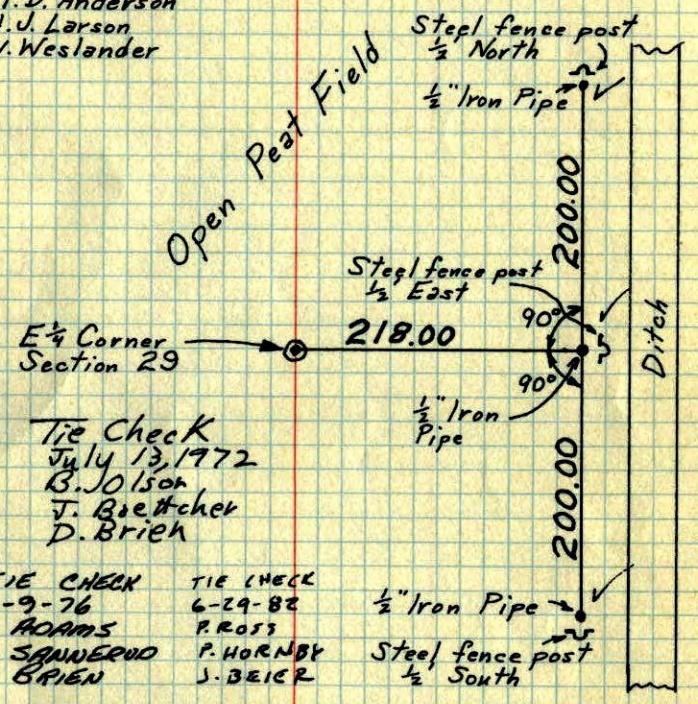 D. Anderson
J. Larson
Weslander
Steel fence post
½ North
½" Iron Pipe
Open Peat Field
200.00
Steel fence post
½ East
90°
E¼ Corner
Section 29
218.00
90°
½" Iron
Pipe
Ditch
Tie Check
July 13, 1972
B. Olson
J. Boettcher
D. Brien
200.00
TIE CHECK
-9-76
ADAMS
SANNERUD
BRIEN
TIE CHECK
6-29-82
P. ROSS
P. HORNBY
J. BEIER
½" Iron Pipe
Steel fence post
½ South